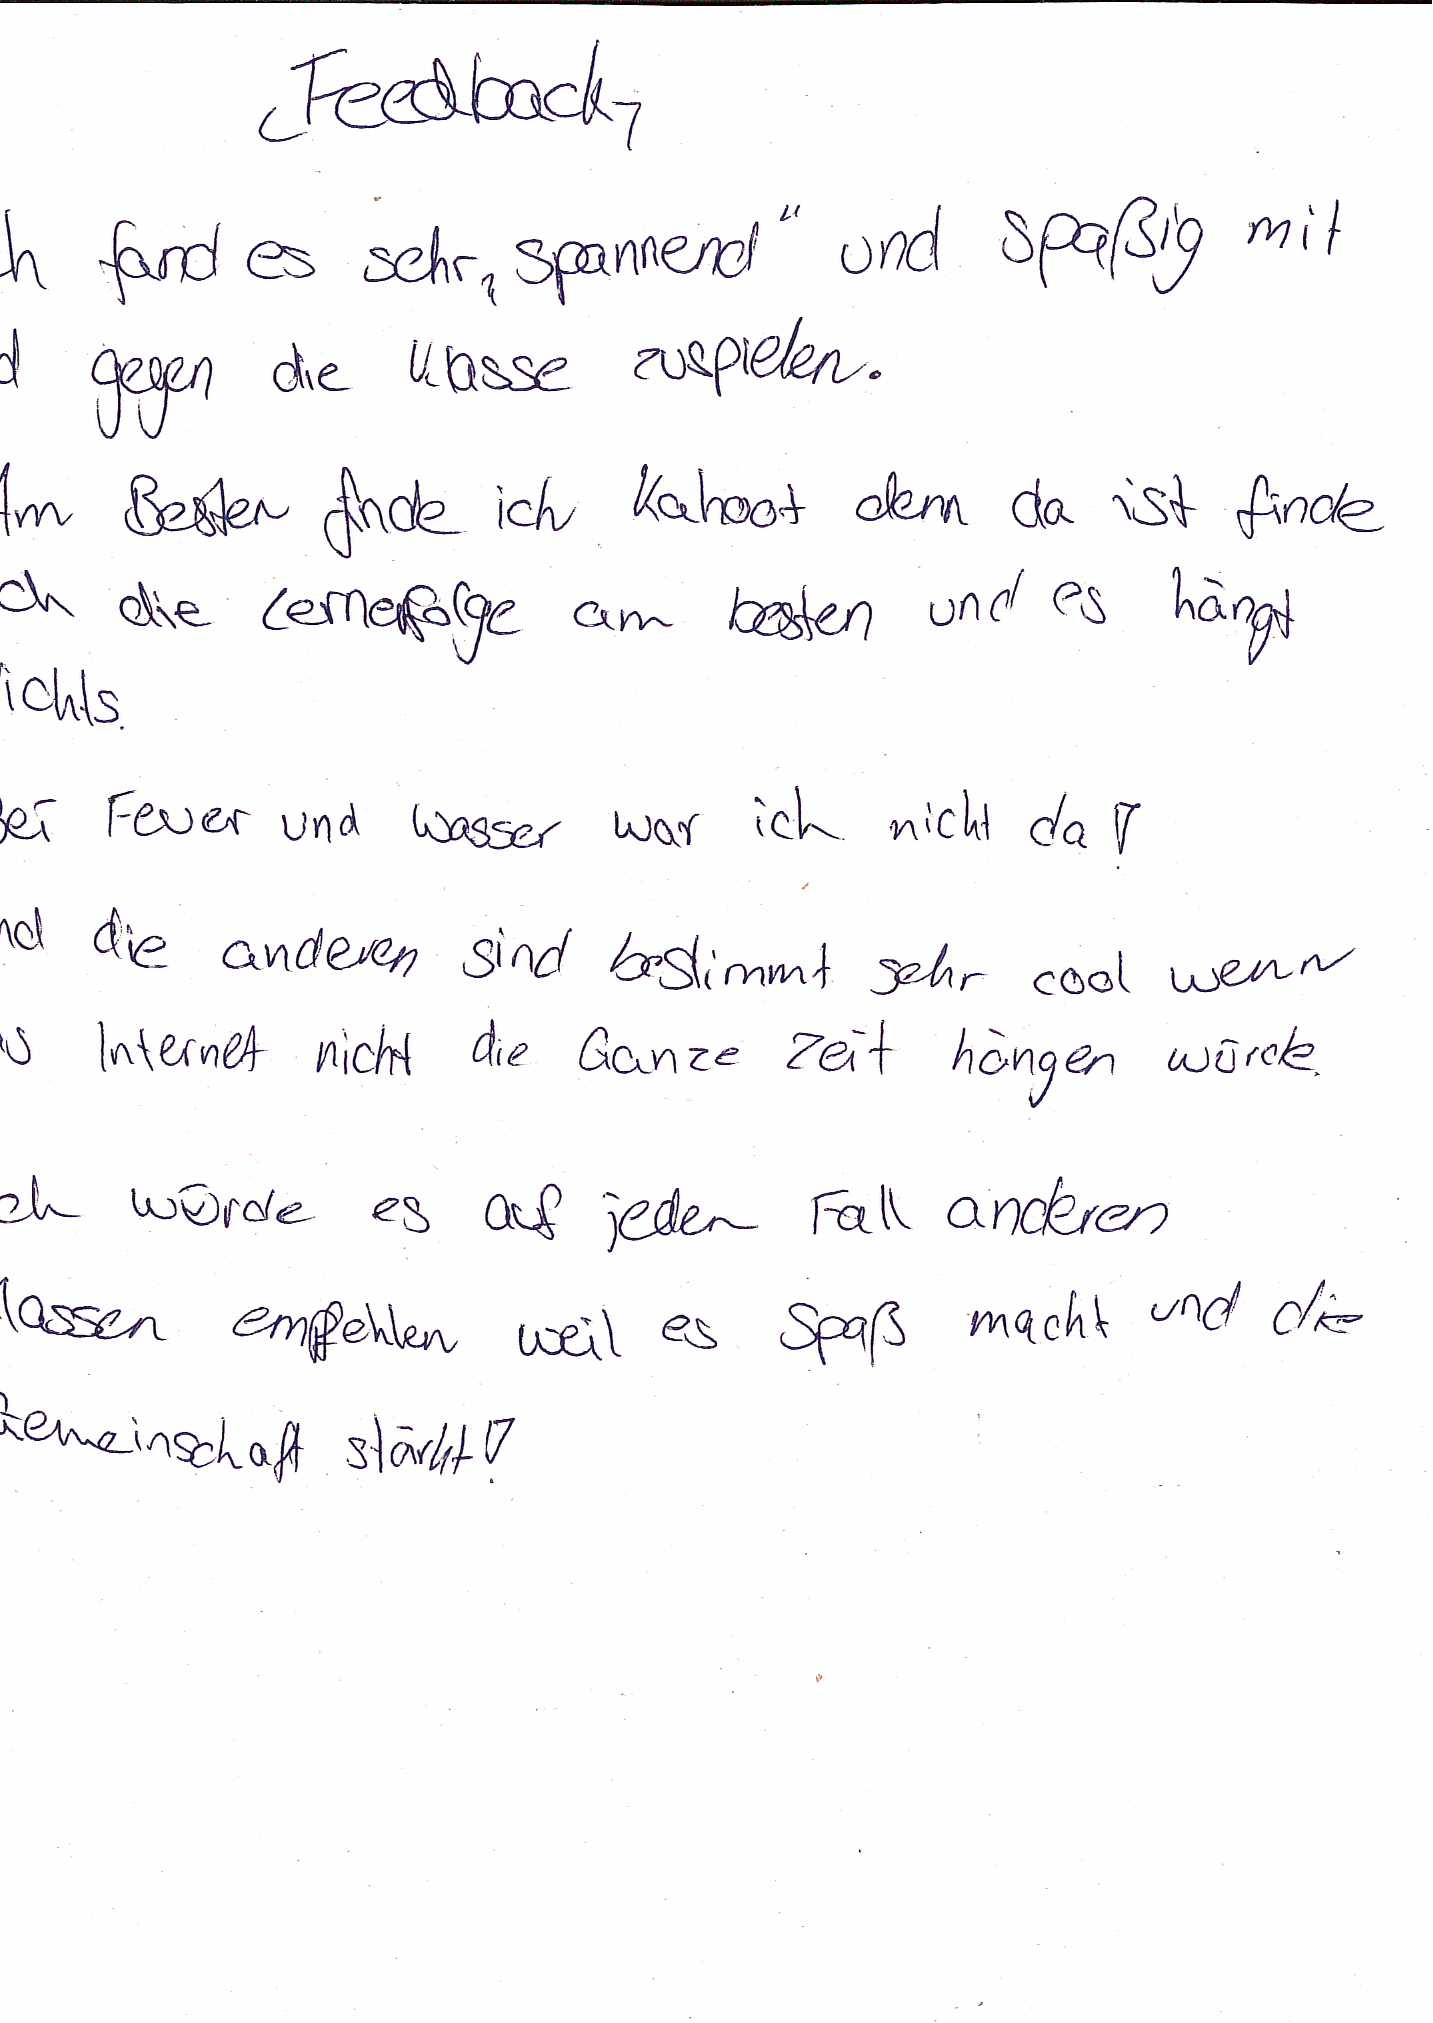 Feedback
ch fand es sehr „spannend“ und spaßig mit
d gegen die Klasse zuspielen.
Am Besten finde ich Kahoot denn da ist finde
ch die Lernerfolge am besten und es hängt
ichts.
Bei Feuer und Wasser war ich nicht da!
nd die anderen sind bestimmt sehr cool wenn
s Internet nicht die Ganze Zeit hängen würde.
ch würde es auf jeden Fall anderen
lassen empfehlen weil es Spaß macht und die
Gemeinschaft stärkt!